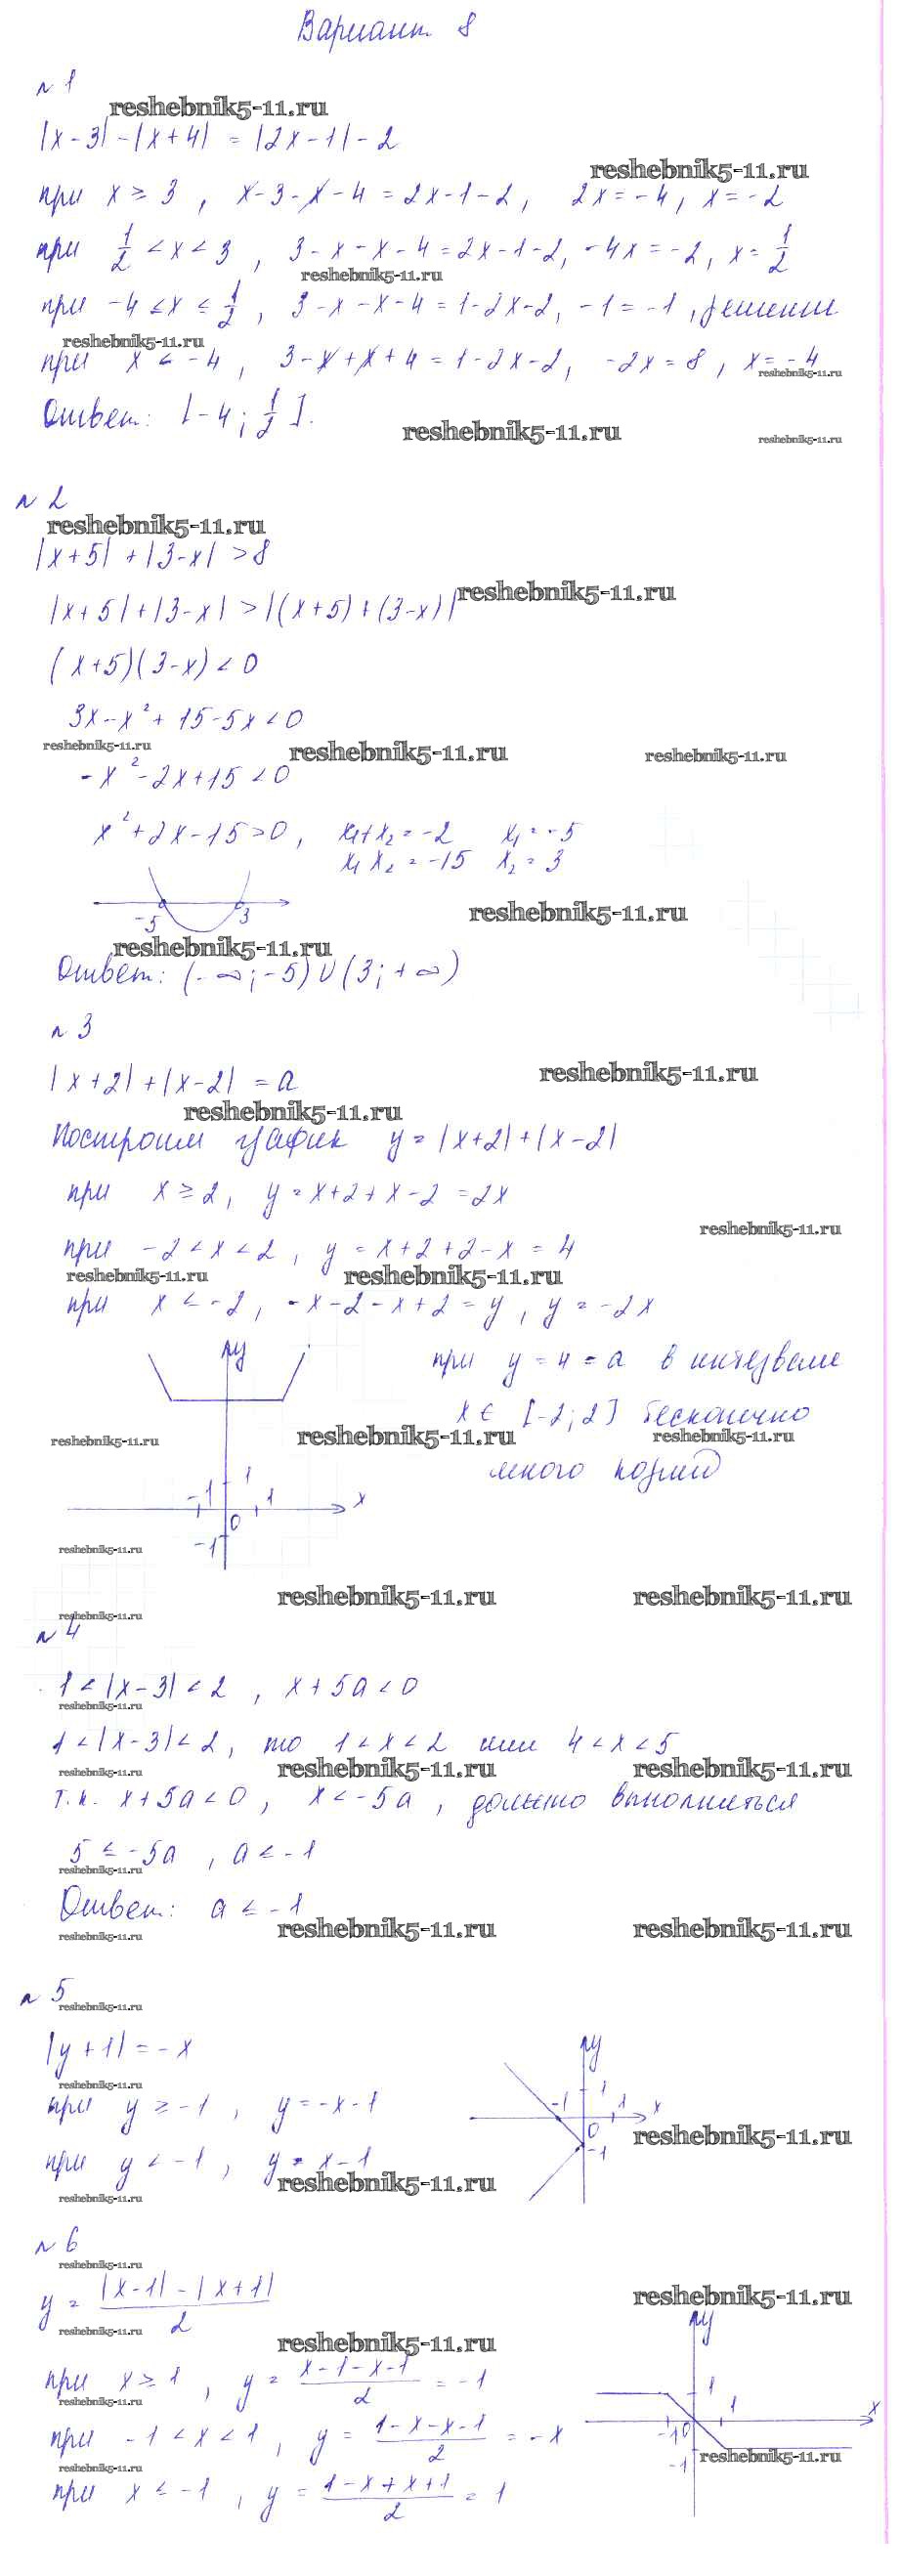 Вариант 8
№ 1
reshebnik5-11.ru
|x-3| - |x+4| = |2x-1| - 2
reshebnik5-11.ru
при x ≥ 3, x-3-x-4 = 2x-1-2, 2x = -4, x = -2
при 1/2 < x < 3, 3-x-x-4 = 2x-1-2, -4x = -2, x = 1/2
reshebnik5-11.ru
при -4 ≤ x ≤ 1/2, 3-x-x-4 = 1-2x-2, -1 = -1, решения
reshebnik5-11.ru
при x < -4, 3-x+x+4 = 1-2x-2, -2x = 8, x = -4
reshebnik5-11.ru
Ответ: [-4; 1/2].
reshebnik5-11.ru
reshebnik5-11.ru
№ 2
reshebnik5-11.ru
|x+5| + |3-x| > 8
reshebnik5-11.ru
|x+5| + |3-x| > |(x+5) + (3-x)|
(x+5)(3-x) < 0
3x - x² + 15 - 5x < 0
reshebnik5-11.ru reshebnik5-11.ru reshebnik5-11.ru
-x² - 2x + 15 < 0
x² + 2x - 15 > 0, x₁+x₂ = -2 x₁ = -5
x₁ x₂ = -15 x₂ = 3
-5 3
reshebnik5-11.ru
reshebnik5-11.ru
Ответ: (-∞; -5) ∪ (3; +∞)
№ 3
|x+2| + |x-2| = a
reshebnik5-11.ru
reshebnik5-11.ru
Построим график y = |x+2| + |x-2|
при x ≥ 2, y = x+2+x-2 = 2x
reshebnik5-11.ru
при -2 < x < 2, y = x+2+2-x = 4
reshebnik5-11.ru reshebnik5-11.ru
при x ≤ -2, -x-2-x+2 = y, y = -2x
y
при y = 4 = a в интервале
x ∈ [-2; 2] бесконечно
reshebnik5-11.ru reshebnik5-11.ru reshebnik5-11.ru
много корней
-1 1 1 x
0
-1
reshebnik5-11.ru
reshebnik5-11.ru reshebnik5-11.ru
reshebnik5-11.ru
№ 4
1 < |x-3| < 2, x + 5a < 0
reshebnik5-11.ru
1 < |x-3| < 2, то 1 < x < 2 или 4 < x < 5
reshebnik5-11.ru reshebnik5-11.ru reshebnik5-11.ru
т.к. x + 5a < 0, x < -5a, должно выполняться
5 ≤ -5a, a ≤ -1
reshebnik5-11.ru
Ответ: a ≤ -1
reshebnik5-11.ru reshebnik5-11.ru reshebnik5-11.ru
№ 5
reshebnik5-11.ru
|y+1| = -x
reshebnik5-11.ru
при y ≥ -1, y = -x-1
при y < -1, y = x-1
y
-1 1 1 x
0
-1
reshebnik5-11.ru
reshebnik5-11.ru
reshebnik5-11.ru
№ 6
reshebnik5-11.ru
y = |x-1| - |x+1| / 2
reshebnik5-11.ru
reshebnik5-11.ru
reshebnik5-11.ru
при x ≥ 1, y = x-1-x-1 / 2 = -1
reshebnik5-11.ru
при -1 < x < 1, y = 1-x-x-1 / 2 = -x
reshebnik5-11.ru
при x ≤ -1, y = 1-x+x+1 / 2 = 1
y
1 1 x
-1 0
-1
reshebnik5-11.ru